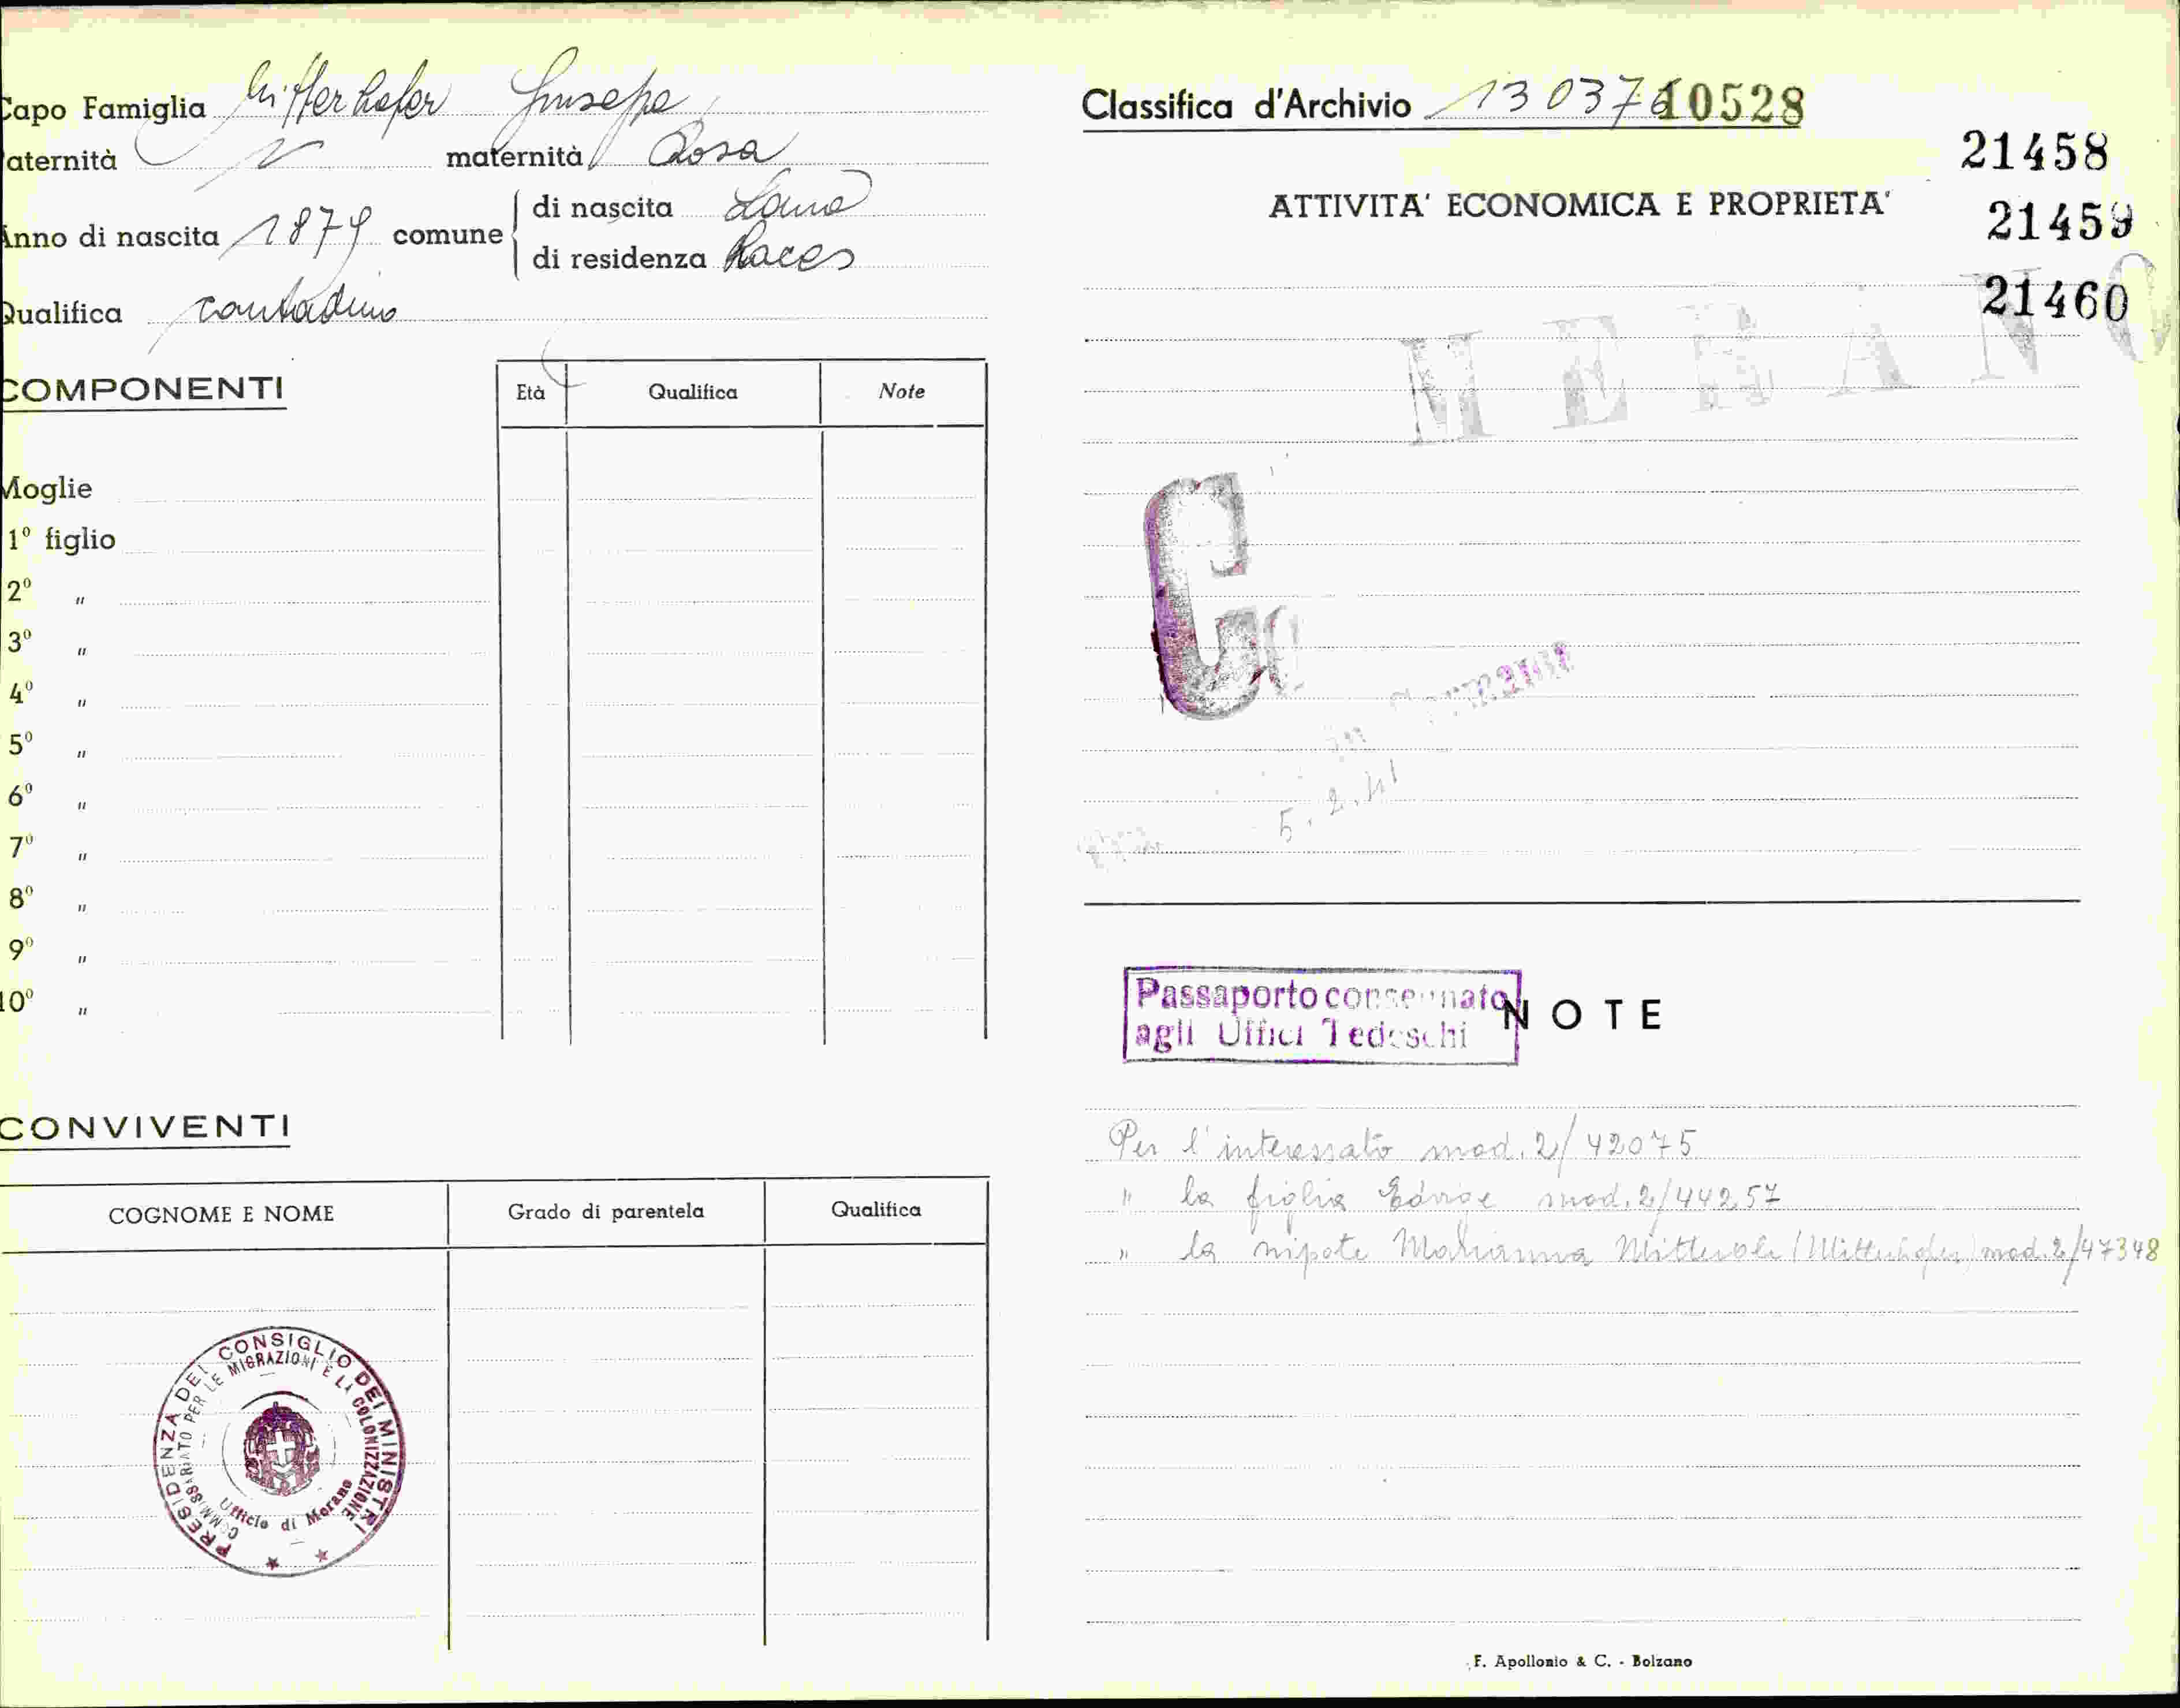 Capo Famiglia Mitterhofer Giuseppe
aternità N maternità Rosa
Anno di nascita 1879 comune di nascita Lana
di residenza Races
Qualifica contadino
COMPONENTI
Età Qualifica Note
Moglie
1º figlio
2º "
3º "
4º "
5º "
6º "
7º "
8º "
9º "
10º "
CONVIVENTI
COGNOME E NOME Grado di parentela Qualifica
PRESIDENZA DEL CONSIGLIO DEI MINISTRI
COMMISSARIATO PER LE MIGRAZIONI E LA COLONIZZAZIONE
Ufficio di Merano
Classifica d'Archivio 130376 10528
21458
ATTIVITA' ECONOMICA E PROPRIETA'
21459
21460
MERANO
G
in Germania
5.2.41
Passaporto consegnato
agli Uffici Tedeschi
NOTE
Per l'interessato mod. 2/42075
" la figlia Edvige mod. 2/44257
" la nipote Marianna (Mitterhofer) mod. 2/47348
F. Apollonio & C. - Bolzano